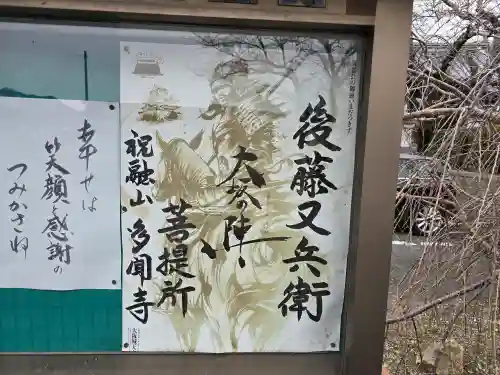 後藤又兵衛
大坂の陣
菩提所
祝融山多聞寺
幸せは
笑顔と感謝の
つみかさね